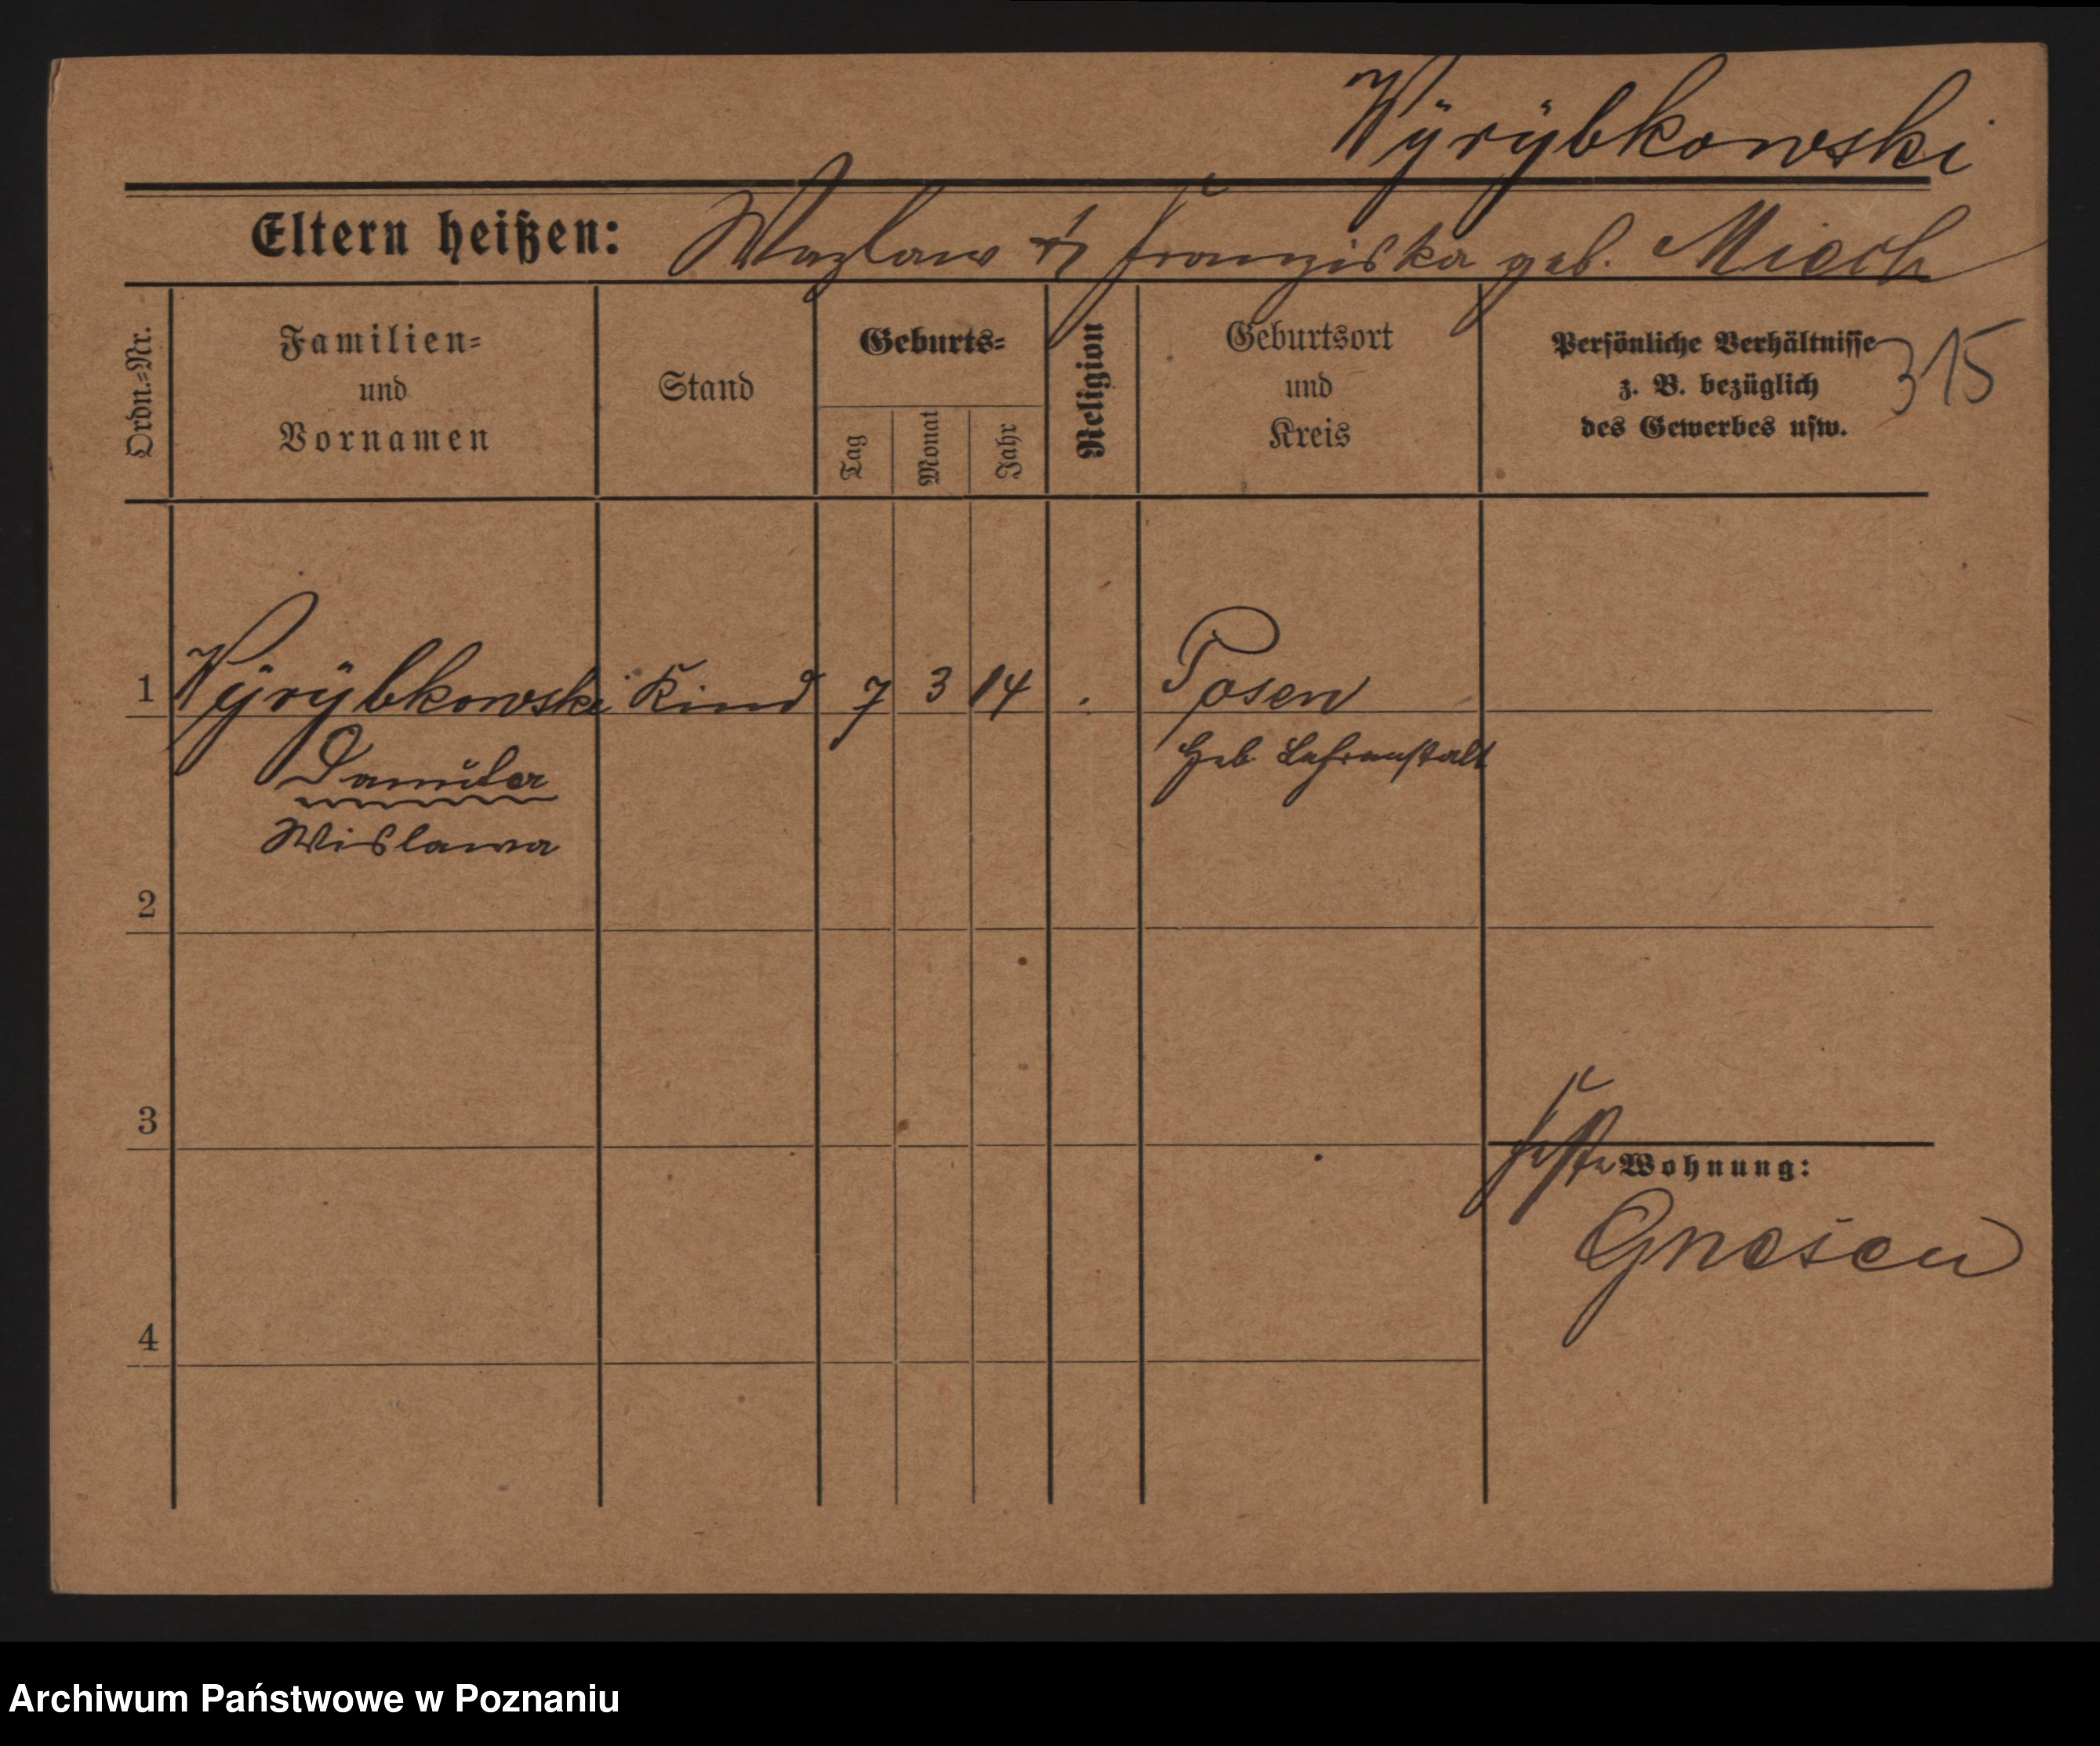 Wÿrÿbkowski
Eltern heißen: Wazlaw & Franziska geb. Miech
Ordn.-Nr.
Familien-
und
Vornamen
Stand
Geburts-
Tag
Monat
Jahr
Religion
Geburtsort
und
Kreis
Persönliche Verhältnisse
z. B. bezüglich
des Gewerbes usw.
315
1 Wÿrÿbkowski Kind 7 3 14 . Posen
Danuta Heb. Lehranstalt
Wislawa
2
3
feste Wohnung:
Gnesen
4
Archiwum Państwowe w Poznaniu